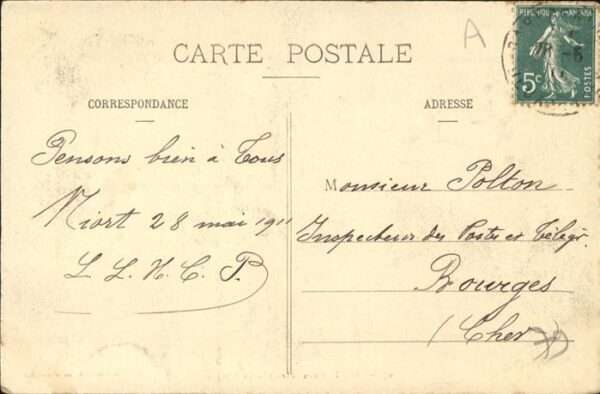 CARTE POSTALE
CORRESPONDANCE
Pensons bien à Tous
Niort 28 mai 1911
L L. H. C. P.
ADRESSE
Monsieur Polton
Inspecteur des Postes et Télégr.
Bourges
(Cher)
A
5c
POSTES